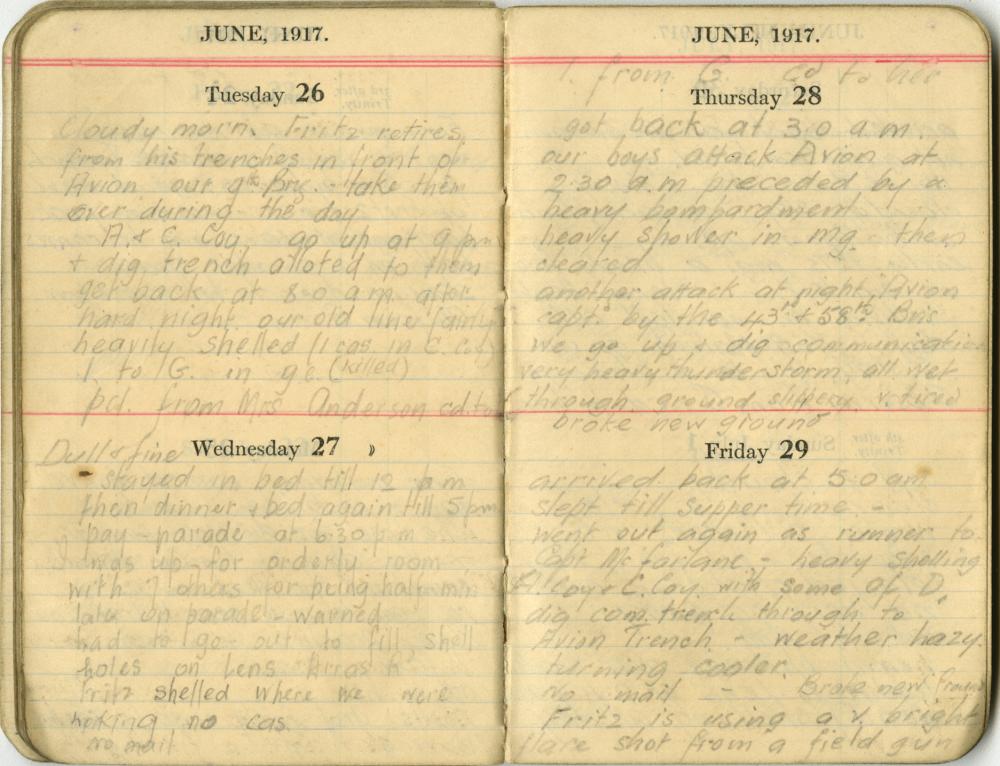 JUNE, 1917.
Tuesday 26
Cloudy morn. Fritz retires
from his trenches in front of
Avion our 9th Bry. take them
over during the day
A. & C. Coy. go up at 9 pm
+ dig trench alloted to them
get back at 8.0 a m after
hard night our old line fairly
heavily shelled (1 cas in C. Coy
1 to G. in (killed)
pd. from Mrs Anderson
Wednesday 27
Dull & fine
stayed in bed till 12 p m
then dinner & bed again till 5 pm
pay-parade at 6.30 p m
I was up for orderly room
with 7 others for being half min
late on parade - warned
had to go out to fill shell
holes on Lens Arras
Fritz shelled where we were
wking no cas.
no mail
JUNE, 1917.
1. from G. to her
Thursday 28
got back at 3.0 a.m.
our boys attack Avion at
2.30 a.m preceded by a
heavy bombardment
heavy shower in mg. then
cleared
another attack at night, Avion
capt. by the 43rd & 58th Bns
we go up & dig communication
very heavy thunderstorm, all wet
through, ground slippery
broke new ground
Friday 29
arrived back at 5.0 am
slept till supper time. -
went out again as runner to
Capt McFarlane - heavy shelling
A. Coy & C. Coy. with some of D.
dig com. trench through to
Avion Trench - weather hazy.
turning cooler.
no mail - Broke new
Fritz is using a v. bright
flare shot from a field gun